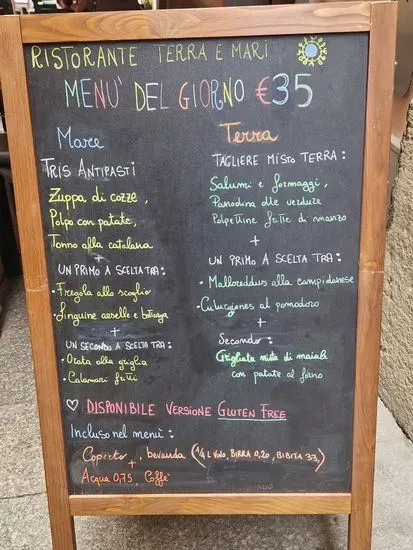 RISTORANTE TERRA E MARI
MENU' DEL GIORNO €35
Mare
TRIS ANTIPASTI
Zuppa di cozze,
Polpo con patate,
Tonno alla catalana
+
UN PRIMO A SCELTA TRA:
• Fregola allo scoglio
• Linguine arselle e bottarga
+
UN SECONDO A SCELTA TRA:
• Orata alla griglia
• Calamari fritti
Terra
TAGLIERE MISTO TERRA:
Salumi e formaggi,
Panadina alle verdure
Polpettine fritte di manzo
+
UN PRIMO A SCELTA TRA:
• Malloreddus alla campidanese
• Culurgiones al pomodoro
+
Secondo:
Grigliata mista di maiale
con patate al forno
♡ DISPONIBILE VERSIONE GLUTEN FREE
Incluso nel menù:
Coperto, bevanda (1/4 L VINO, BIRRA 0,20, BIBITA 33)
+
Acqua 0,75, Caffè